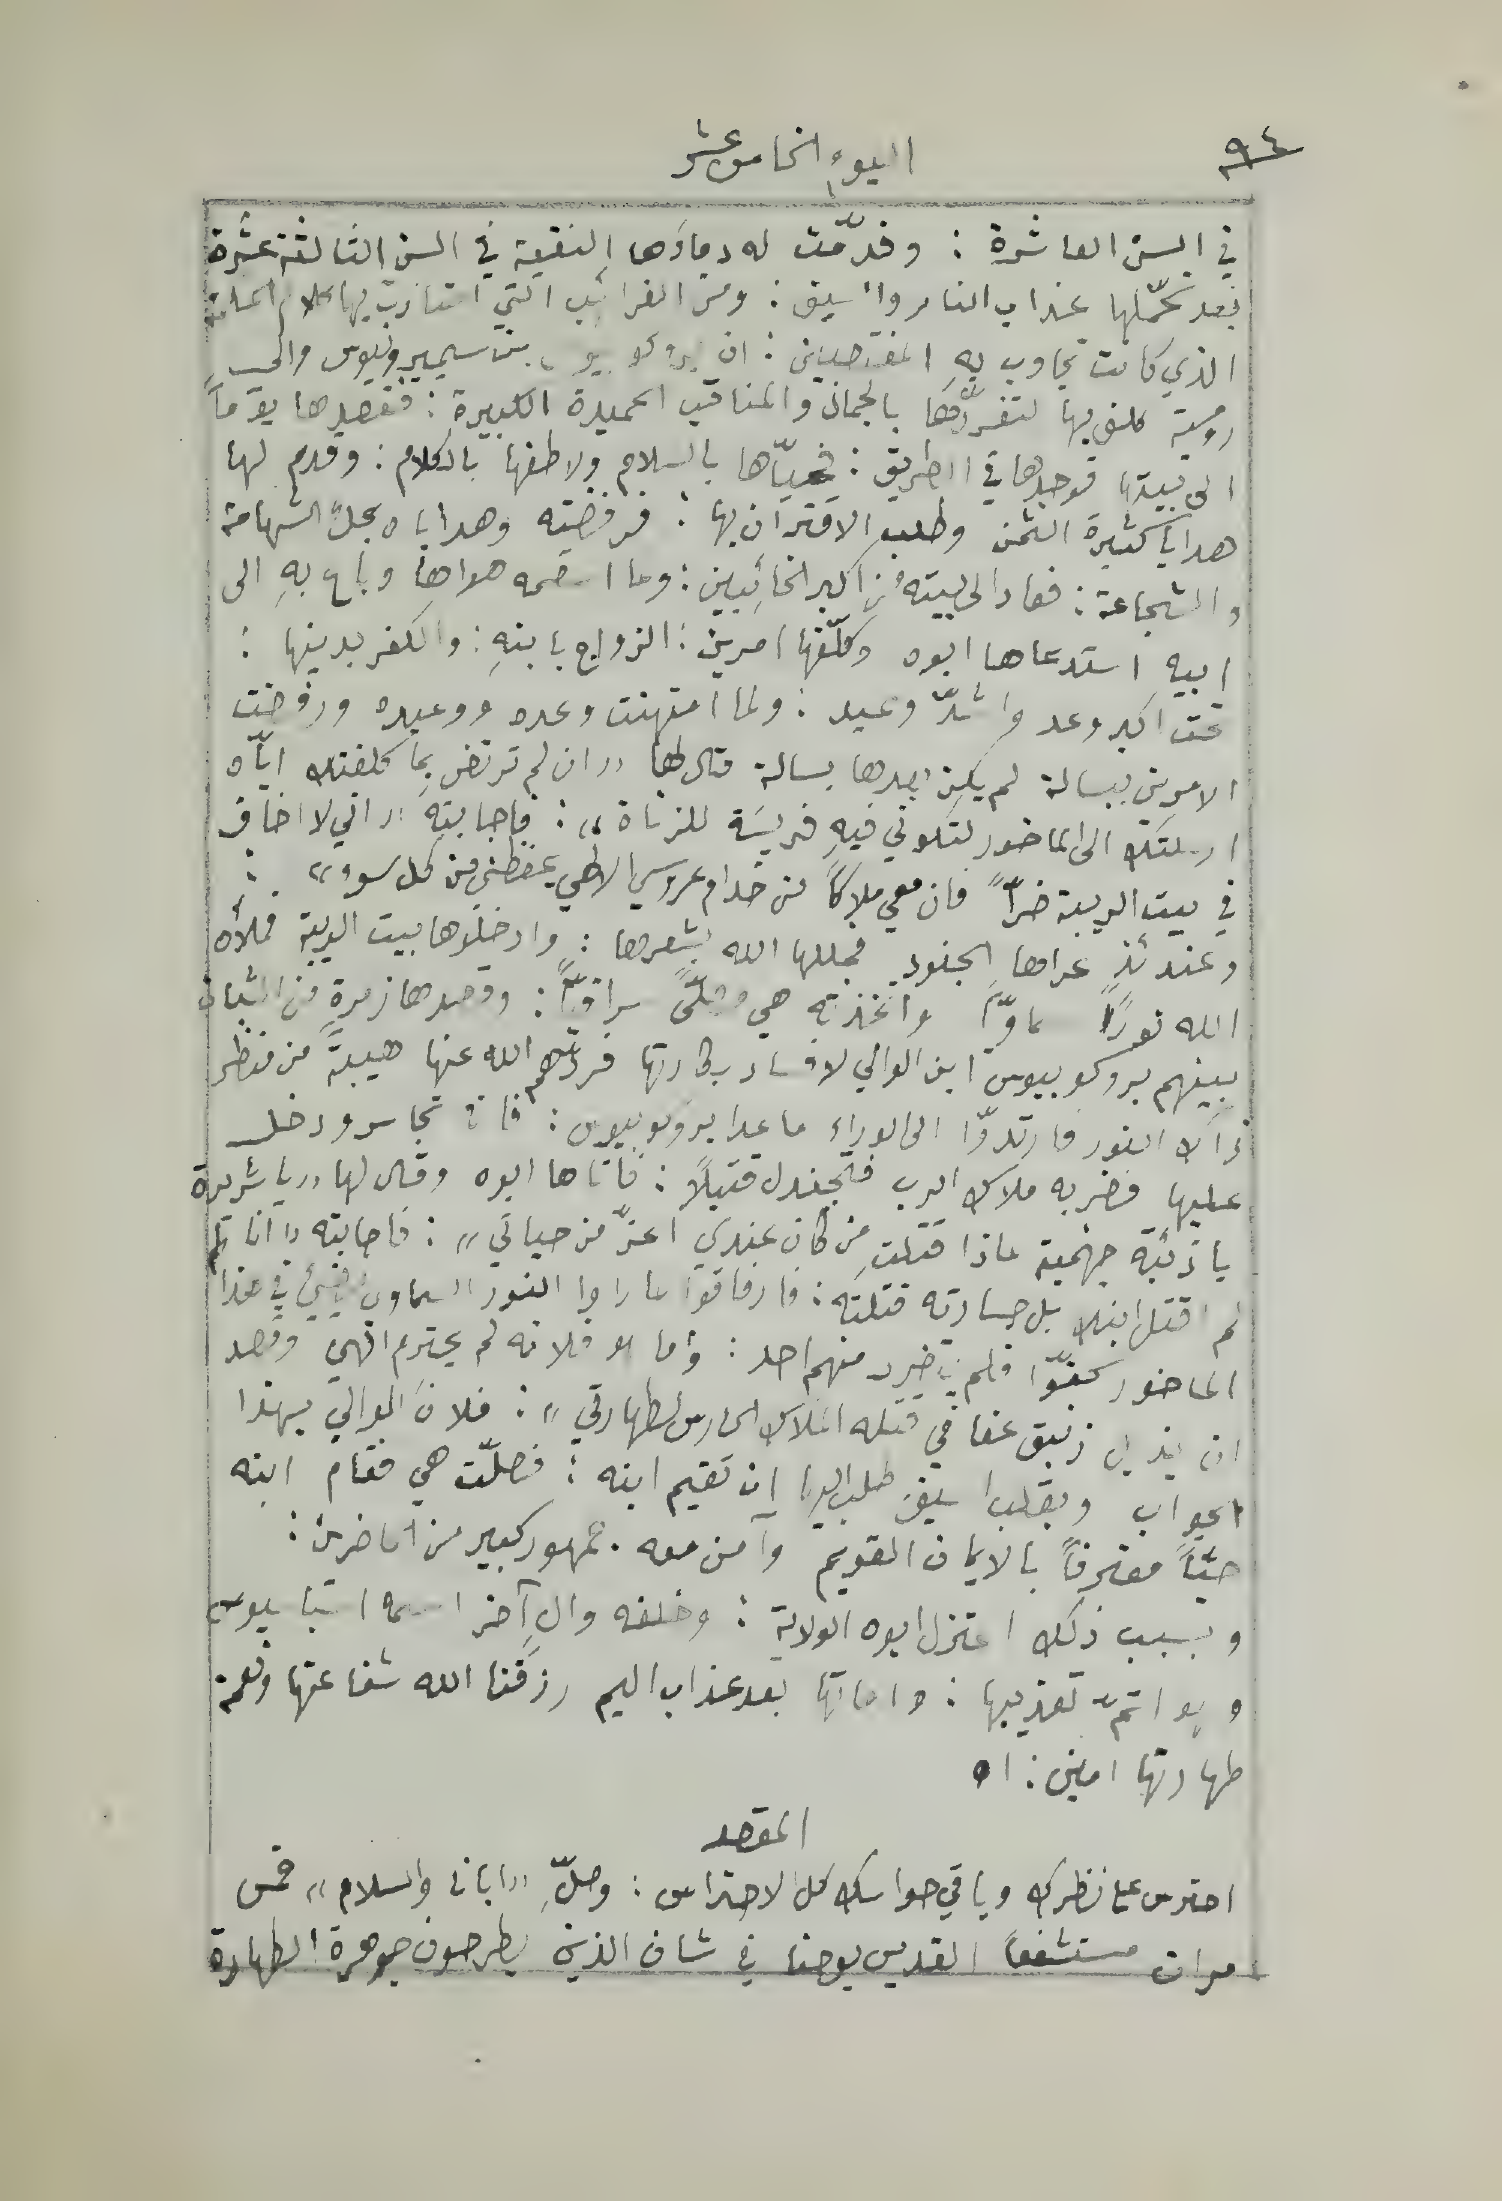 ٩٤
اليوم الخامس عشر
في السن العاشرة : وقدمّت له دماءَها النقية في السن الثالثة عشرة
بعد تحمّلها عذاب النار والسيف : ومن الغرائب التي امتازت بها كلام الملائكة
الذي كانت تجاوب به المغتصبين : ان بروكوبيوس بن سيميرونيوس والي
رومية كلف بها لتفرُّدها بالجمال والمناقب الحميدة الكبيرة : فقصدها يومًا
الى بيتها فوجدها في الطريق : فحيّاها بالسلام ولاطفها بالكلام : وقدم لها
هدايا كثيرة الثمن وطلب الاقتران بها : فرفضته وهداياه بكلّ الشهامة
والشجاعة : فعاد الى بيته من اكبر الخائبين : وما اسقمه هواها وباح بهِ الى
ابيه استدعاها ابوه وكلّفها امرين : الزواج بابنهِ : والكفر بدينها :
تحت اكبر وعد واشدّ وعيد : ولما امتهنت وعده ووعيده ورفضت
الامرين ببسالة لم يكن بعدها بسالة قال لها « ان لم ترتضِ بما كلفتك ايّاه
ارسلتك الى الماخور لتكوني فيهِ فريسة للزناة » : فاجابتهِ « اني لا اخاف
في بيت الريبة ضرًّا فان معي ملاكًا من خدام عروسي الالهي يحفظني من كل سوء » :
وعندئذٍ عراها الجنود فجللها الله بشعرها : وادخلوها بيت الريبة فملأه
الله نورًا سماويًّا واتخذته هي مصلًّى سراقيًّا : وقصدها زمرة من الشبان
بينهم بروكوبيوس ابن الوالي لافساد بكارتها فردّهم الله عنها هيبةً من منظر
ذاك النور فارتدّوا الى الوراء ما عدا بروكوبيوس : فانه تجاسر ودخل
عليها فضربه ملاك الرب فتجندل قتيلًا : فاتاها ابوه وقال لها « يا شريرة
يا ذئبة جهنمية لماذا قتلتِ من كان عندي اعزّ من حياتي » : فاجابته « انا
لم اقتل ابنك بل جسارته قتلته : فارفاقه لما راوا النور السماوي يضيء في هذا
الماخور كفّوا فلم يتضرر منهم احد : واما هو فلانه لم يحترم الهي وقصد
ان يذبل زنبق عفافي قتله الملاك الحارس لطهارتي » : فلان الوالي بهذا
الجواب وبقلب اسيف طلب اليها ان تقيم ابنه : فصلّت هي فقام ابنه
حيًّا معترفًا بالايمان القويم وآمن معه جمهور كبير من الحاضرين :
وبسبب ذلك اعتزل ابوه الولاية : وخلفه والٍ آخر اسمه اسباسيوس
وهو اتمّ تعذيبها : واماتها بعد عذاب اليم رزقنا الله شفاعتها ونعمة
طهارتها امين : اه
المقصد
احترس على نظرك وباقي حواسك كل الاحتراس : وصلِّ « ابانا والسلام » خمس
مرات مستشفعًا القديس يوحنا في شان الذين يطرحون جوهرة الطهارة